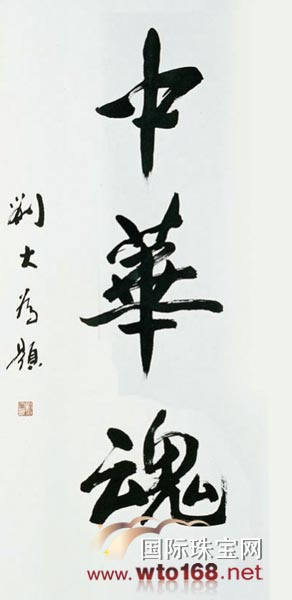 中華魂
劉大為題
国际珠宝网
www.wto168.net